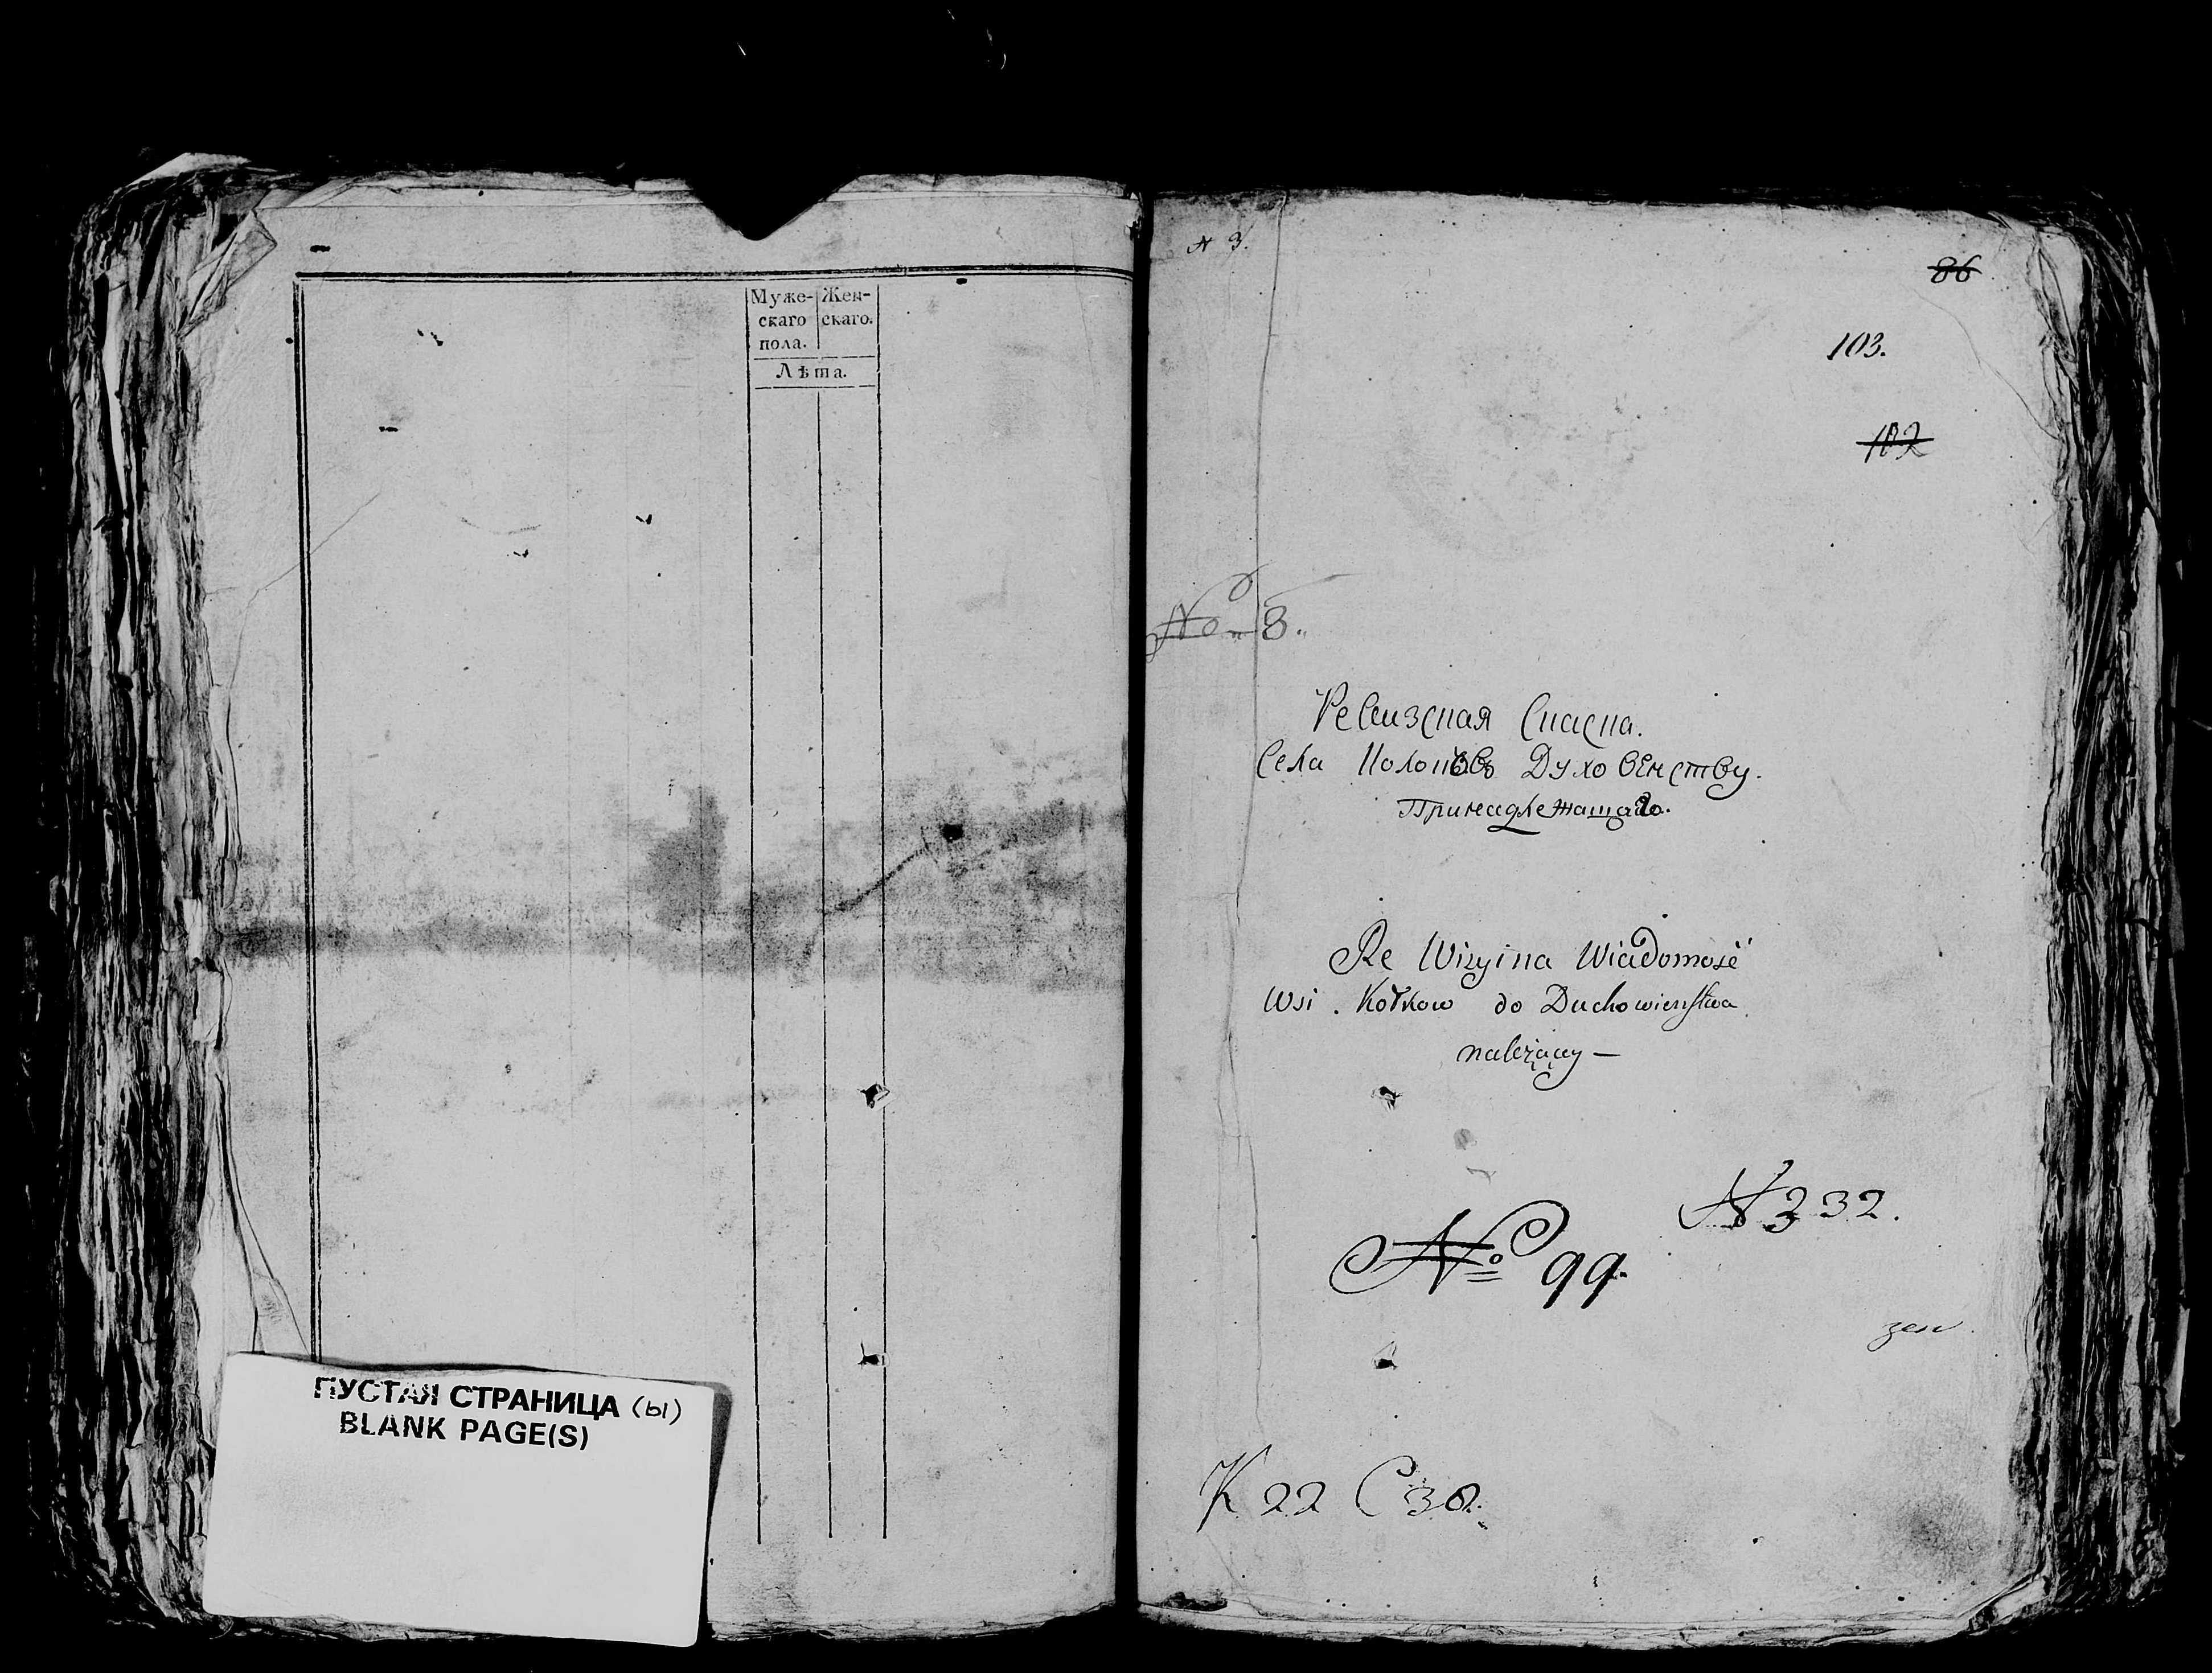 Муже- Жен-
скаго скаго.
пола.
Лѣта.
ПУСТАЯ СТРАНИЦА (ы)
BLANK PAGE(S)
N 3.
86
103.
102
No 8.
Ревизская Сказка.
Села Колковъ Духовенству.
Принадлежащаго.
Re Wizyina Wiadomość
Wsi . Kołkow do Duchowienstwa
należący —
N 332.
No 99.
К 22 С 30.